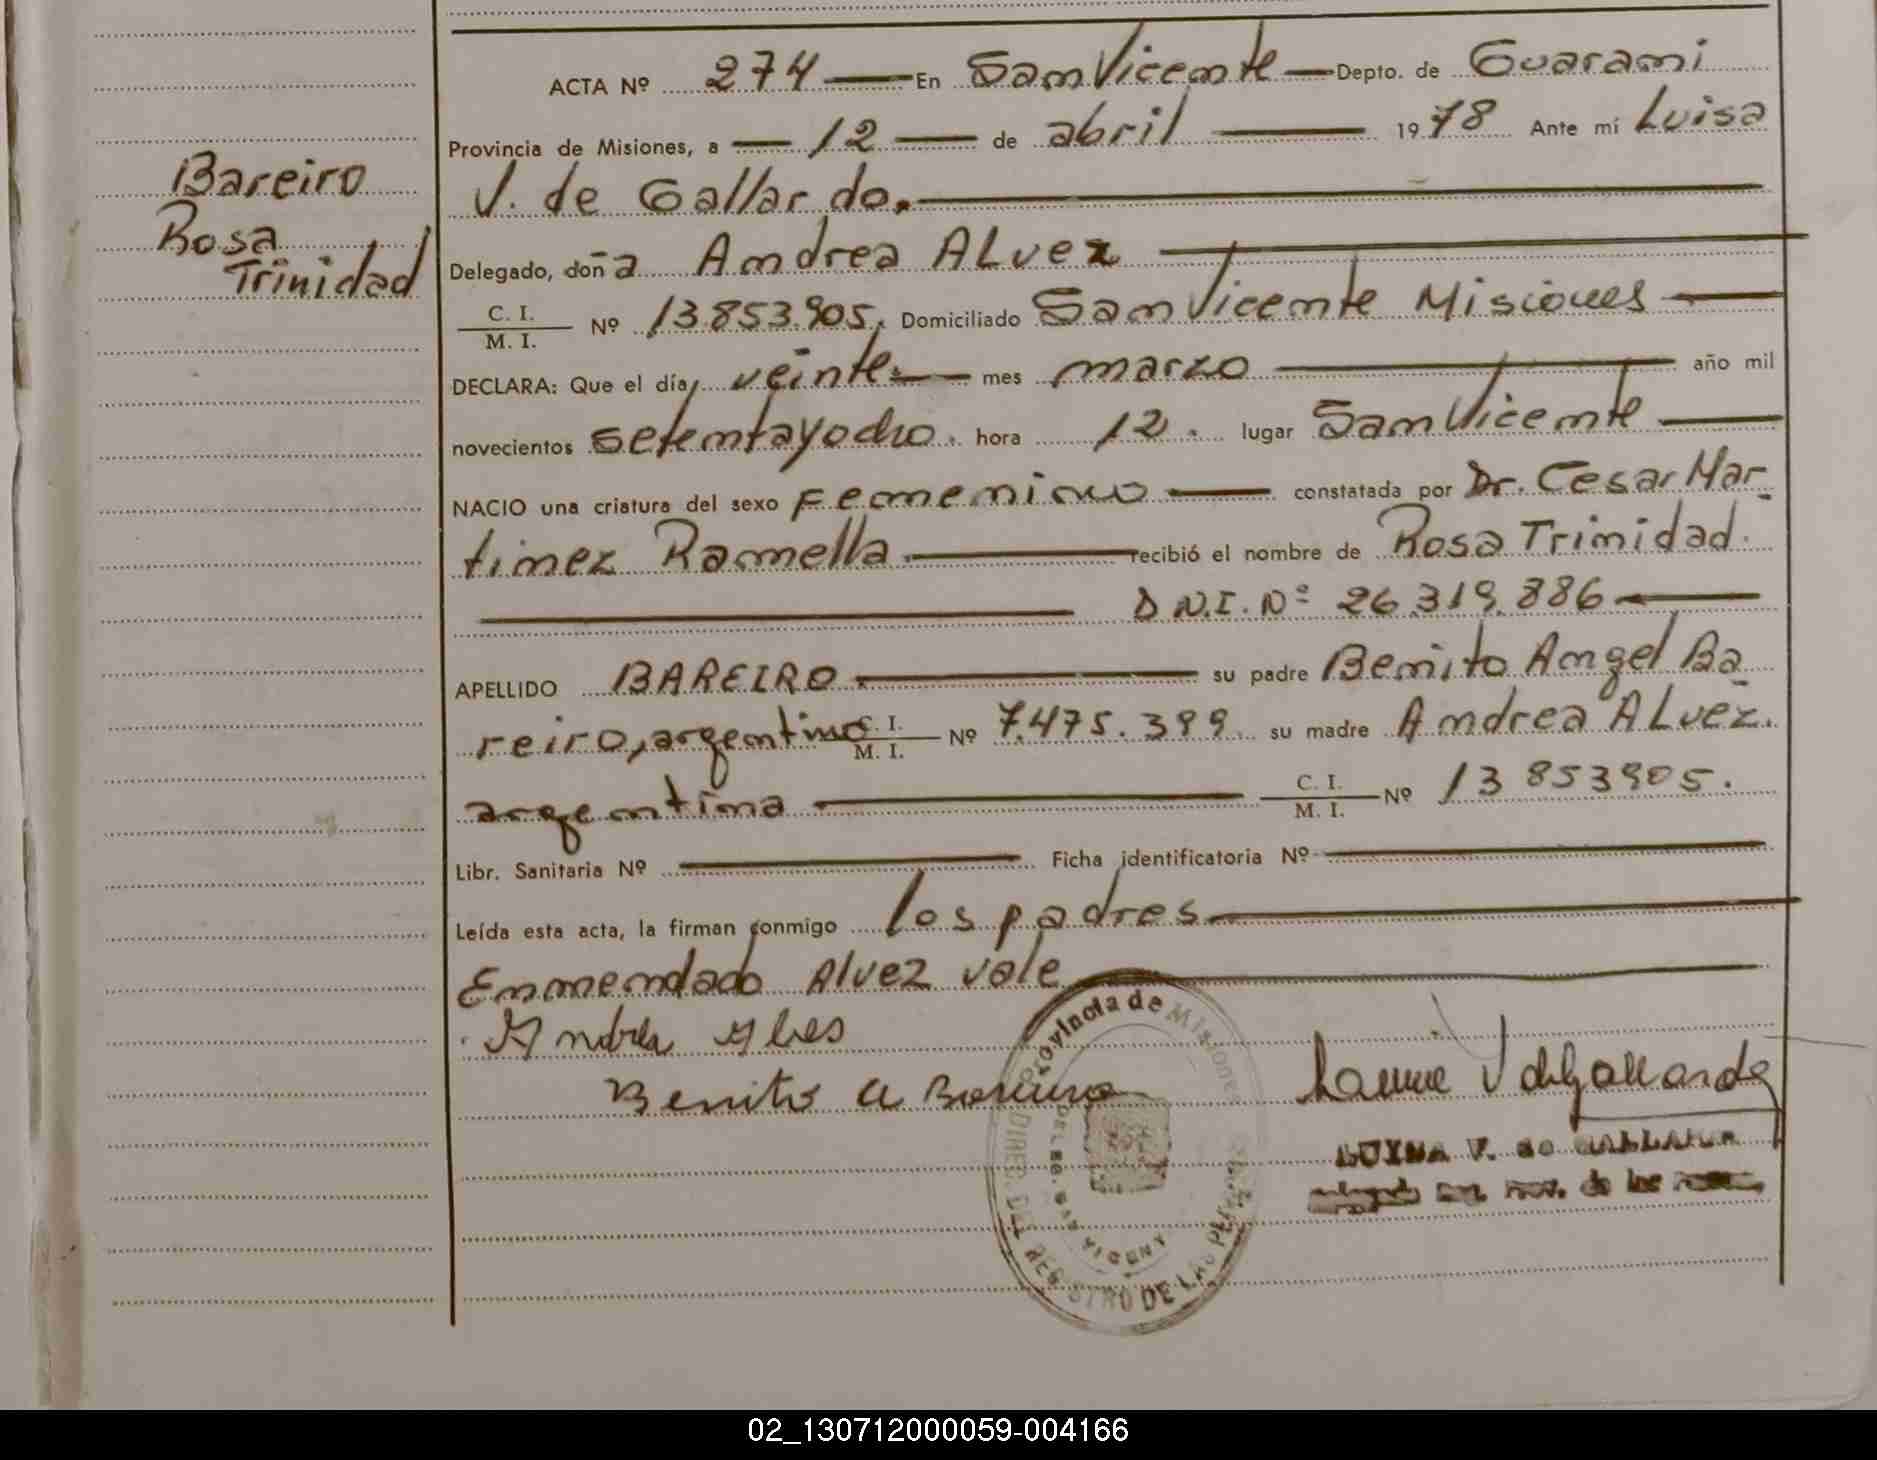 Bareiro
Rosa
Trinidad
ACTA Nº 274 En San Vicente Depto. de Guarani
Provincia de Misiones, a 12 de abril 1978 Ante mí Luisa
V. de Gallardo.
Delegado, doña Andrea ALvez
C. I.
M. I.
Nº 13.853.905. Domiciliado San Vicente Misiones
DECLARA: Que el día, veinte mes marzo año mil
novecientos setentayocho. hora 12. lugar San Vicente
NACIO una criatura del sexo Femenino constatada por Dr. Cesar Mar-
tinez Ramella recibió el nombre de Rosa Trinidad.
D.N.I. Nº 26.319.886
APELLIDO BAREIRO su padre Benito Angel Ba-
reiro, argentino C. I.
M. I.
Nº 7.475.399 su madre Andrea ALvez.
argentina C. I.
M. I.
Nº 13 853905.
Libr. Sanitaria Nº Ficha identificatoria Nº
Leída esta acta, la firman conmigo los padres
Enmendado Alvez vale
Andrea Albes
Benito A Bareiro
Provincia de Misiones
DIREC. DEL REGISTRO DE LAS
DELEG. SAN VICENTE
LUISA V. de GALLARDO
02_130712000059-004166